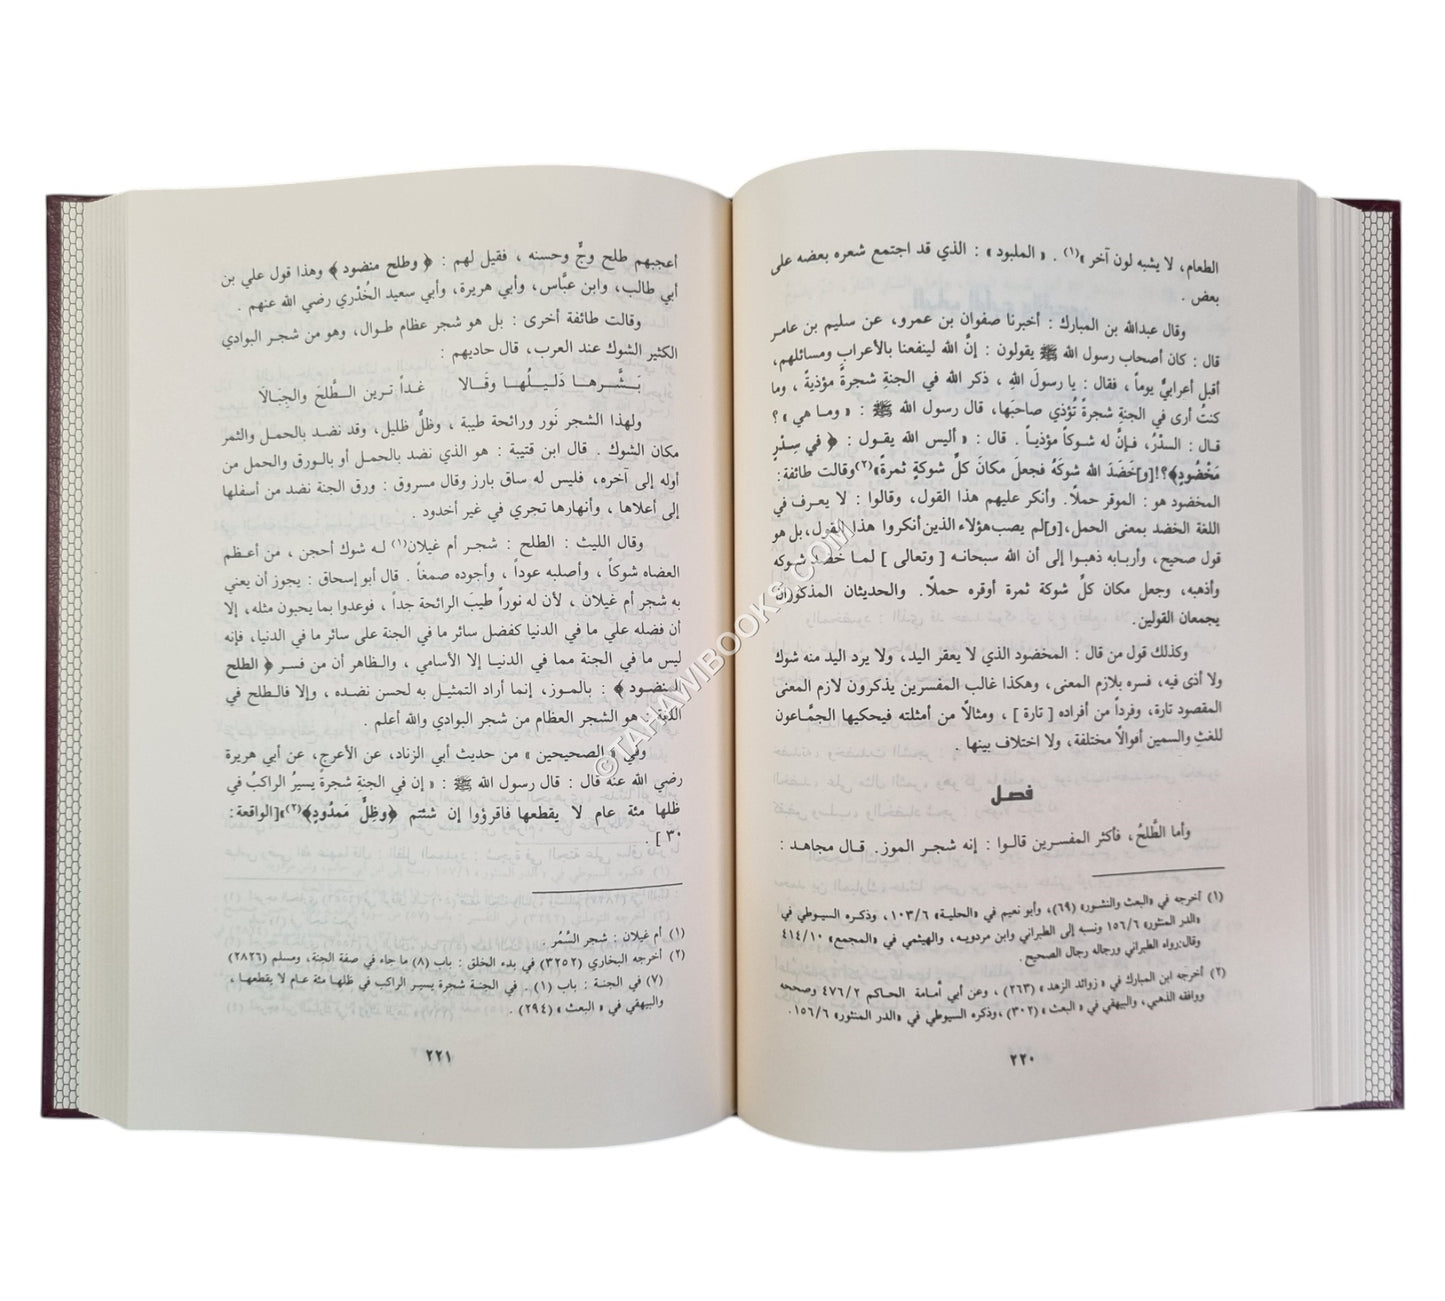 الطعام، لا يشبه لون آخر»(١) . « الملبود » : الذي قد اجتمع شعره بعضه على
بعض .
وقال عبدالله بن المبارك : أخبرنا صفوان بن عمرو، عن سليم بن عامر
قال : كان أصحاب رسول الله ﷺ يقولون : إنَّ الله لينفعنا بالأعراب ومسائلهم،
أقبل أعرابيٌّ يوماً ، فقال : يا رسولَ اللهِ ، ذكر الله في الجنةِ شجرةً مؤذيةً ، وما
كنتُ أرى في الجنةِ شجرةً تُؤذي صاحبَها، قال رسول الله ﷺ : « وما هي » ؟
قال : السدْرُ، فإنَّ له شوكاً مؤذياً . قال : « أليس الله يقول : ﴿ في سِدْرٍ
مَخْضُودٍ﴾؟![و]خَضَدَ الله شوكَهُ فجعلَ مكانَ كلِّ شوكةٍ ثمرةً»(٢)وقالت طائفة:
المخضود هو : الموقر حملًا. وأنكر عليهم هذا القول، وقالوا : لا يعرف في
اللغة الخضد بمعنى الحمل،[و]لم يصب هؤلاء الذين أنكروا هذا القول، بل هو
قول صحيح، وأربابه ذهبوا إلى أن الله سبحانه [ وتعالى ] لما خضد شوكه
وأذهبه، وجعل مكان كلِّ شوكة ثمرة أوقره حملًا. والحديثان المذكوران
يجمعان القولين.
وكذلك قول من قال : المخضود الذي لا يعقر اليد، ولا يرد اليد منه شوك
ولا أذى فيه، فسره بلازم المعنى، وهكذا غالب المفسرين يذكرون لازم المعنى
المقصود تارة، وفرداً من أفراده [ تارة ] ، ومثالًا من أمثلته فيحكيها الجمَّاعون
للغثِ والسمين أقوالًا مختلفة، ولا اختلاف بينها .
فصل
وأما الطَّلحُ، فأكثر المفسرين قالوا : إنه شجر الموز. قال مجاهد :
(١) أخرجه في «البعث والنشور» (٦٩)، وأبو نعيم في «الحلية» ١٠٣/٦ ، وذكره السيوطي في
«الدر المنثور» ١٥٦/٦ ونسبه إلى الطبراني وابن مردويه، والهيثمي في «المجمع» ٤١٤/١٠
وقال:رواه الطبراني ورجاله رجال الصحيح.
(٢) أخرجه ابن المبارك في « زوائد الزهد » (٢٦٣) ، وعن أبي أمامة الحاكم ٤٧٦/٢ وصححه
ووافقه الذهبي، والبيهقي في « البعث » (٣٠٢) ،وذكره السيوطي في «الدر المنثور» ١٥٦/٦ .
٢٢٠
أعجبهم طلح وجٍّ وحسنه ، فقيل لهم : ﴿ وطلح منضود ﴾ وهذا قول علي بن
أبي طالب، وابن عبَّاس، وأبي هريرة، وأبي سعيد الخُدْري رضي الله عنهم .
وقالت طائفة أخرى : بل هو شجر عظام طوال، وهو من شجر البوادي
الكثير الشوك عند العرب، قال حاديهم :
بَشَّرها دَليلُها وقَالا    غداً ترين الطَّلحَ والجِبَالَا
ولهذا الشجر نَور ورائحة طيبة ، وظلٌّ ظليل، وقد نضد بالحمل والثمر
مكان الشوك . قال ابن قتيبة : هو الذي نضد بالحمل أو بالورق والحمل من
أوله إلى آخره، فليس له ساق بارز وقال مسروق : ورق الجنة نضد من أسفلها
إلى أعلاها ، وأنهارها تجري في غير أخدود .
وقال الليث : الطلح : شجر أم غيلان(١) له شوك أحجن ، من أعظم
العضاه شوكاً ، وأصلبه عوداً ، وأجوده صمغاً . قال أبو إسحاق : يجوز أن يعني
به شجر أم غيلان ، لأن له نوراً طيبَ الرائحة جداً ، فوعدوا بما يحبون مثله، إلا
أن فضله علي ما في الدنيا كفضل سائر ما في الجنة على سائر ما في الدنيا، فإنه
ليس ما في الجنة مما في الدنيا إلا الأسامي ، والظاهر أن من فسر ﴿ الطلح
المنضود ﴾ : بالموز، إنما أراد التمثيل به لحسن نضده ، وإلا فالطلح في
اللغة : هو الشجر العظام من شجر البوادي والله أعلم .
وفي « الصحيحين » من حديث أبي الزناد، عن الأعرج، عن أبي هريرة
رضي الله عنه قال : قال رسول الله ﷺ : « إن في الجنةِ شجرةً يسيرُ الراكبُ في
ظلها مئة عام لا يقطعها فاقرؤوا إن شئتم ﴿وظِلٍّ مَمدُودٍ﴾(٢)»[الواقعة:
٣٠ ] .
(١) أم غيلان : شجر السَّمُر .
(٢) أخرجه البخاري (٣٢٥٢) في بدء الخلق : باب (٨) ما جاء في صفة الجنة، ومسلم (٢٨٢٦)
(٧) في الجنة : باب (١) . في الجنة شجرة يسير الراكب في ظلها مئة عام لا يقطعها ،
والبيهقي في « البعث » (٢٩٤) .
٢٢١
©TAHAWIBOOKS.COM